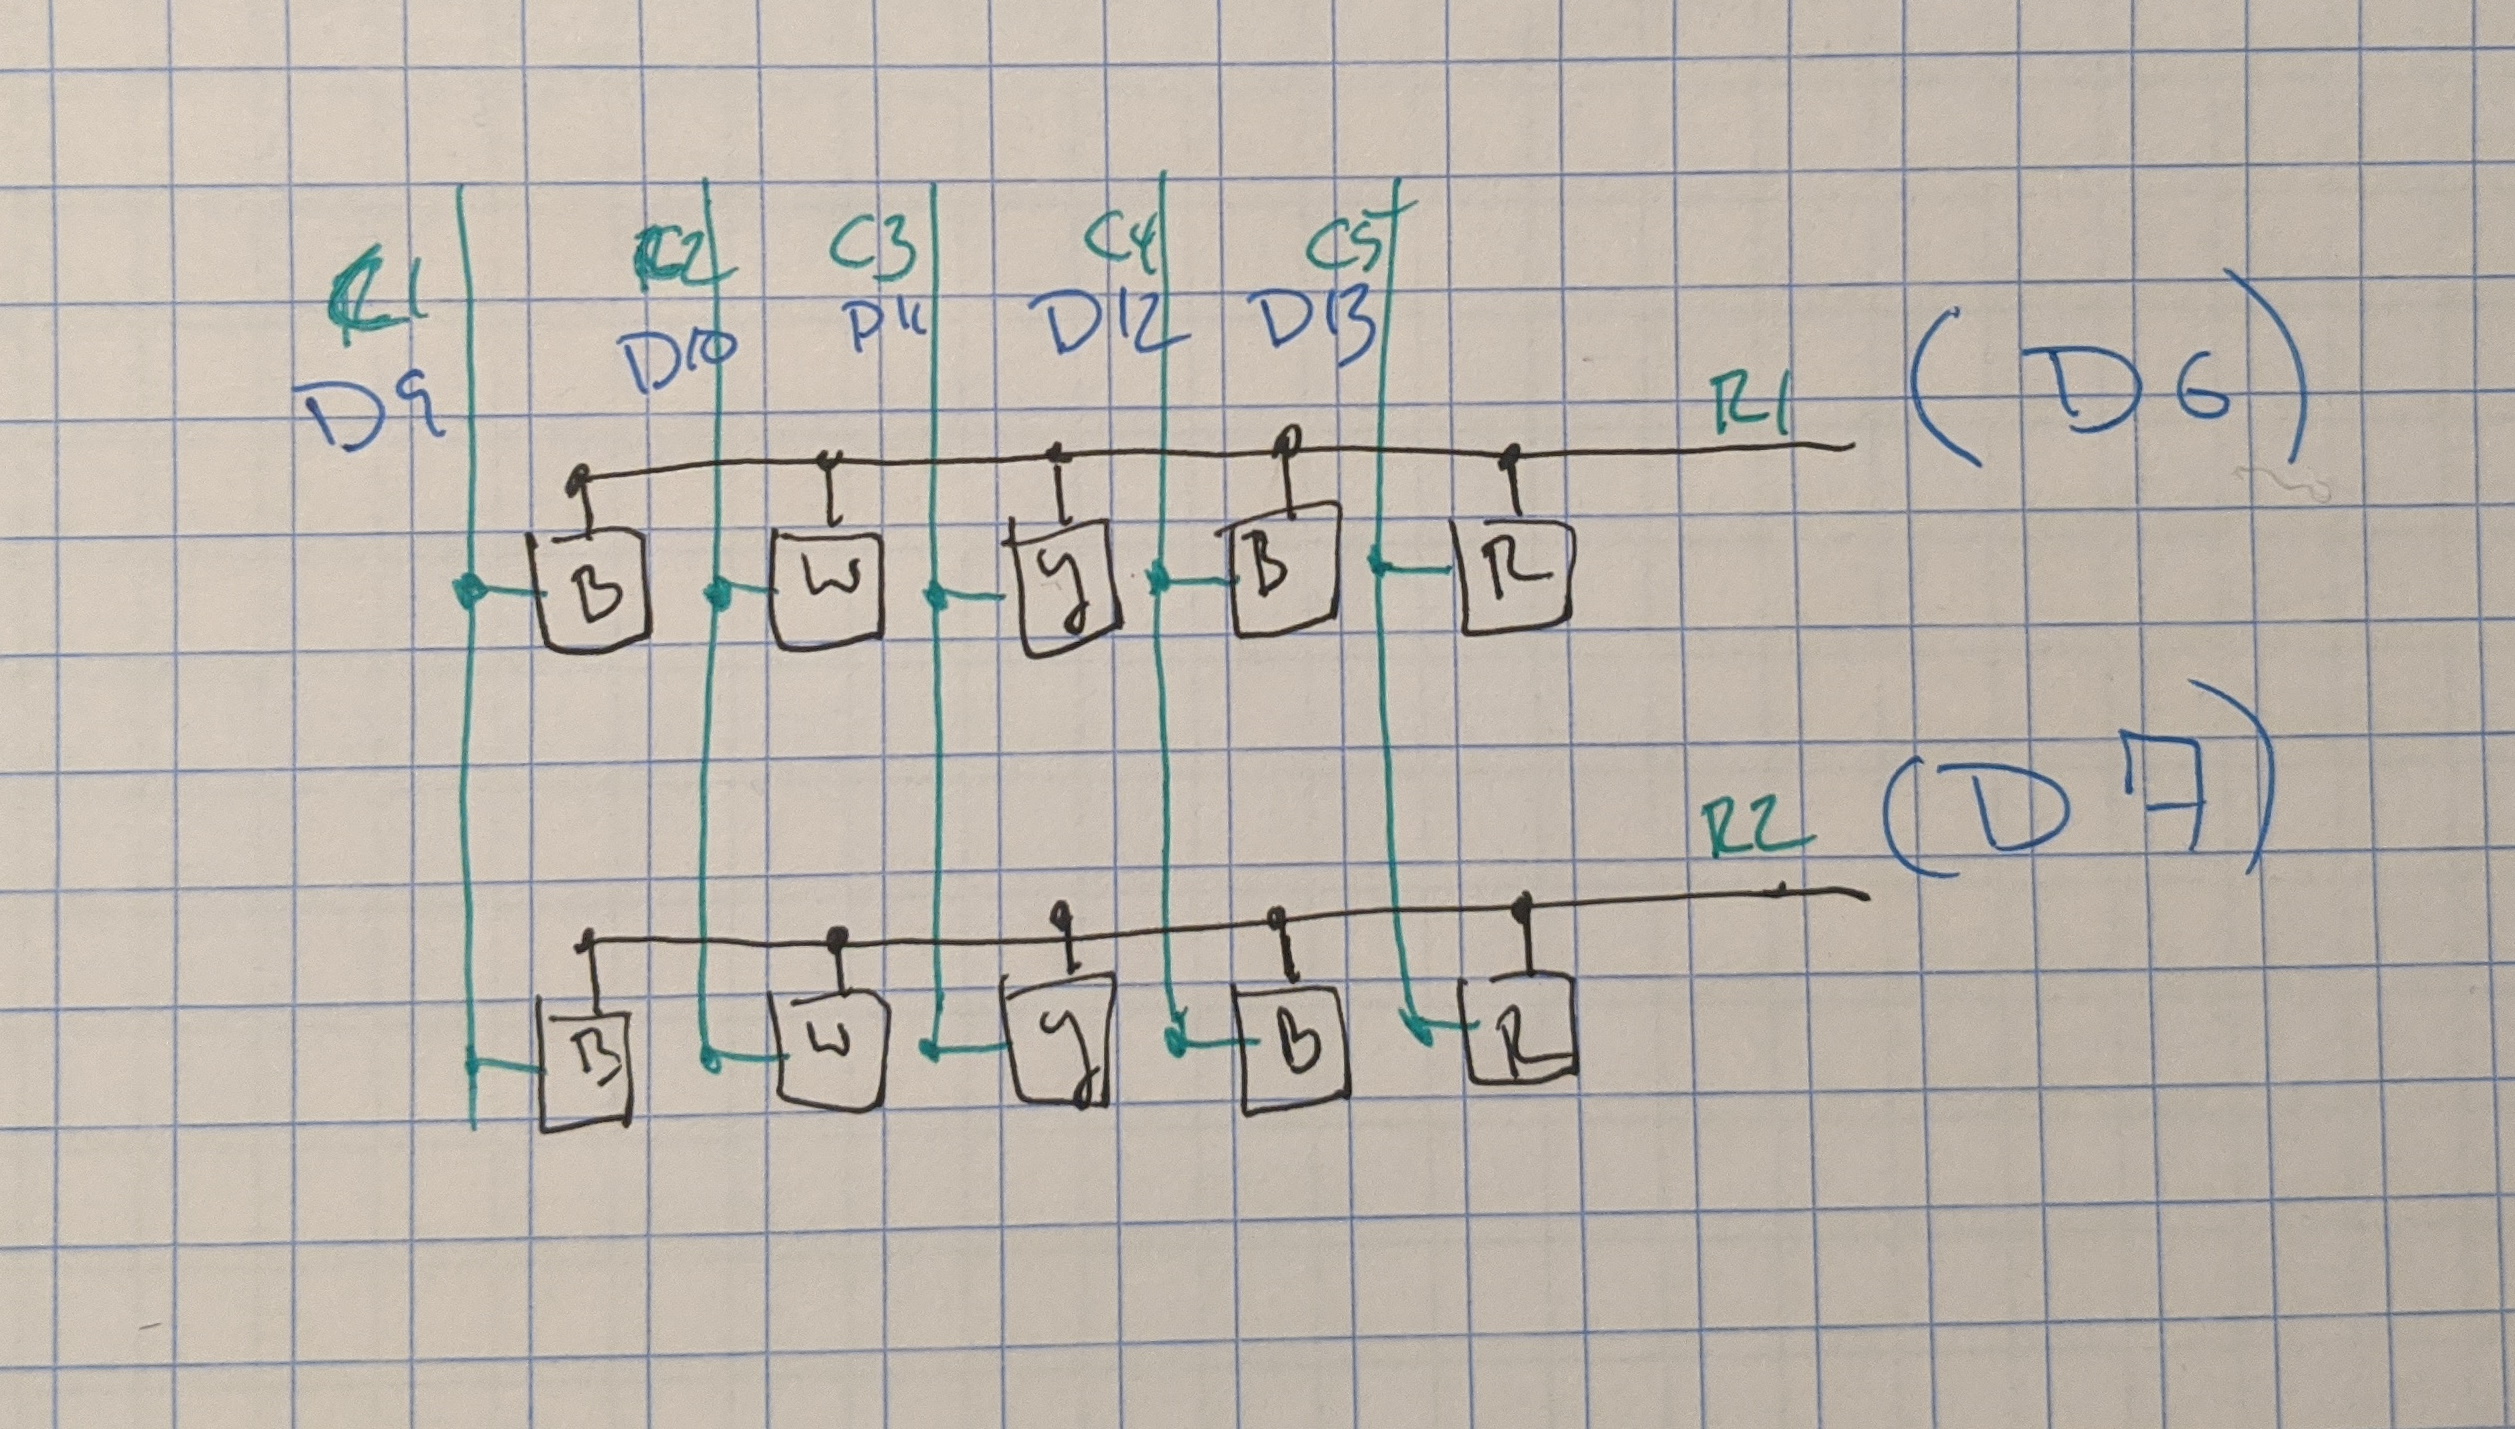 C1 C2 C3 C4 C5
D9 D10 D11 D12 D13
R1 (D6)
B W y B R
R2 (D7)
B W y B R